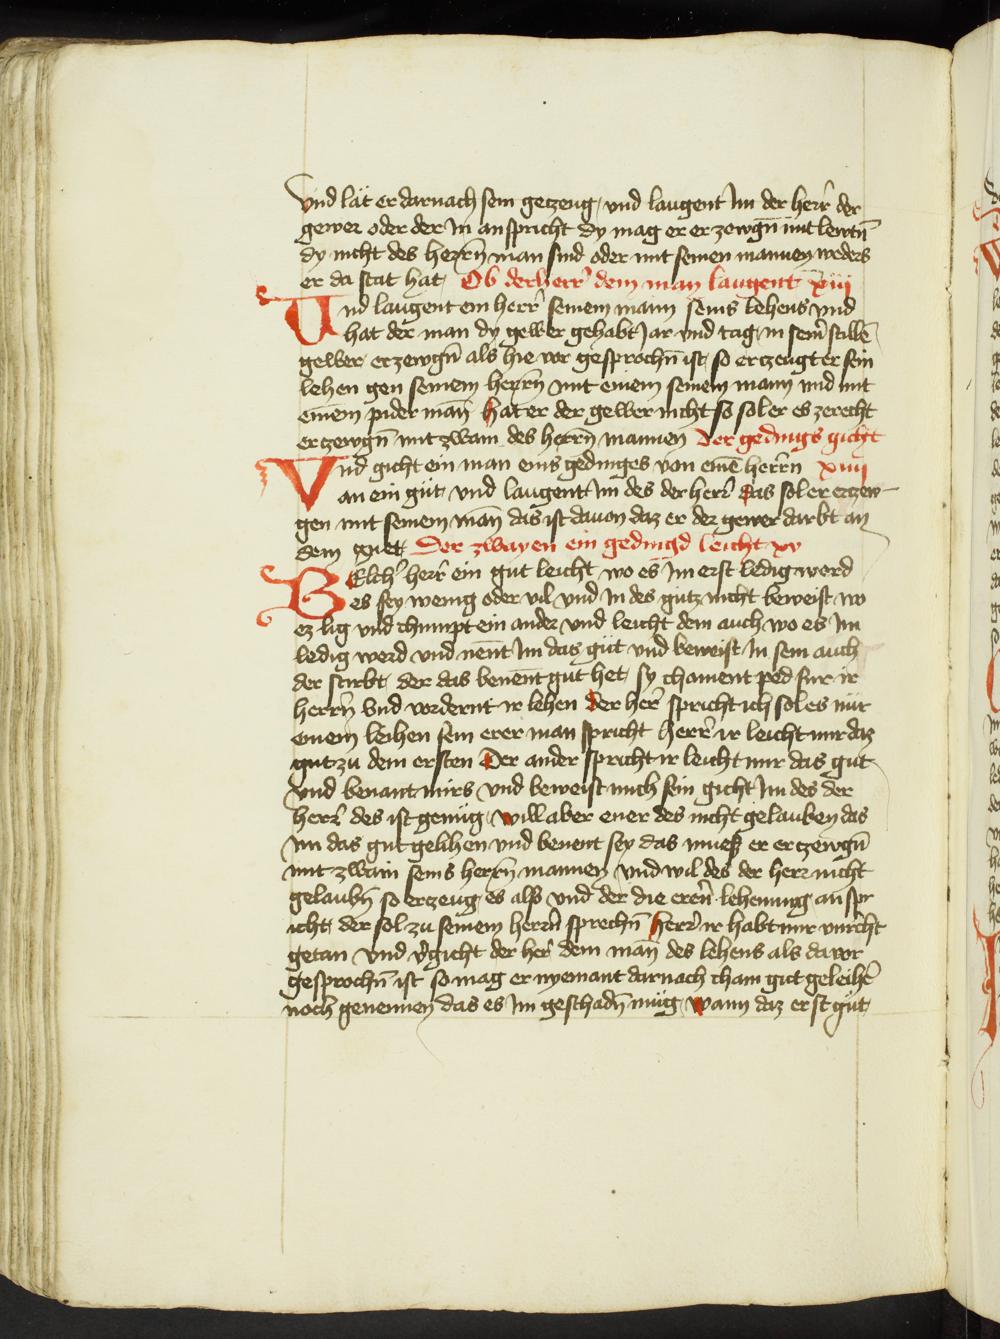 vnd lät er darnach sein geczeug vnd laugent Im der herr̃ der
gewer oder der In an spricht dy mag er er zewgñ mit lewtñ
dy nicht des herrñ man sind oder mit seinen mannen
er da stat hat Ob der herr̃ dem man laugent xiij
Vnd laugent ein herr̃ seinem mann seins lehens vnd
hat der man dy gewer gehabt Jar vnd tag in seiñ stillẽ
gewer erzewgñ als hie vor gesprochñ ist so erczeugt er sein
lehen gen seinem herrñ mit einem seinem mann vnd mit
einem pider mañ hat er der gewer nicht so sol er es zerecht
erczewgñ mit zwain des herrñ mannen Der gedings gicht
Vnd gicht ein man eins gedinges von einẽ herrñ xiiij
an ein güt vnd laugent Im des der herr̃ das sol er erczew
gen mit seinem mañ das ist dauon daz er der gewer darbt an
dem guet Der zwayen ein gedingd leicht xv
WElch̃ herr̃ ein gut leicht wo es Im erst ledig werd
es sey wenig oder vil vnd In des gutz nicht beweist wo
ez lig vnd chumpt ein ander vnd leicht dem auch wo es Im
ledig werd vnd nent Im das güt vnd beweist In sein auch
der stirbt der das benent gut het sy choment ped fur ir
herrñ vnd vordernt ir lehen Der her̃ spricht ich sol es nür
einem leihen sein erer man spricht herr̃ ir leicht mir daz
gut zu dem ersten Der ander spricht ir leicht mir das gut
vnd benant mirs vnd beweist mich sein gicht Im des der
herr̃ des ist genüg will aber ener des nicht gelauben das
Im das gut gelihen vnd benent sey das muess er erczewgñ
mit zwain seins herrñ mannen vnd wil des der herr nicht
gelaubñ so erczeug es alss vnd der die ereñ lehenung an spr
icht der sol zu seinem herrñ sprechñ herr̃ ir habt mir vnrecht
getan vnd v̾gicht der her̃ dem mañ des lehens als da vor
gesprochñ ist so mag er nyemant darnach chain gut geleihẽ
noch genennen das es Im geschadñ müg wann daz erst güt